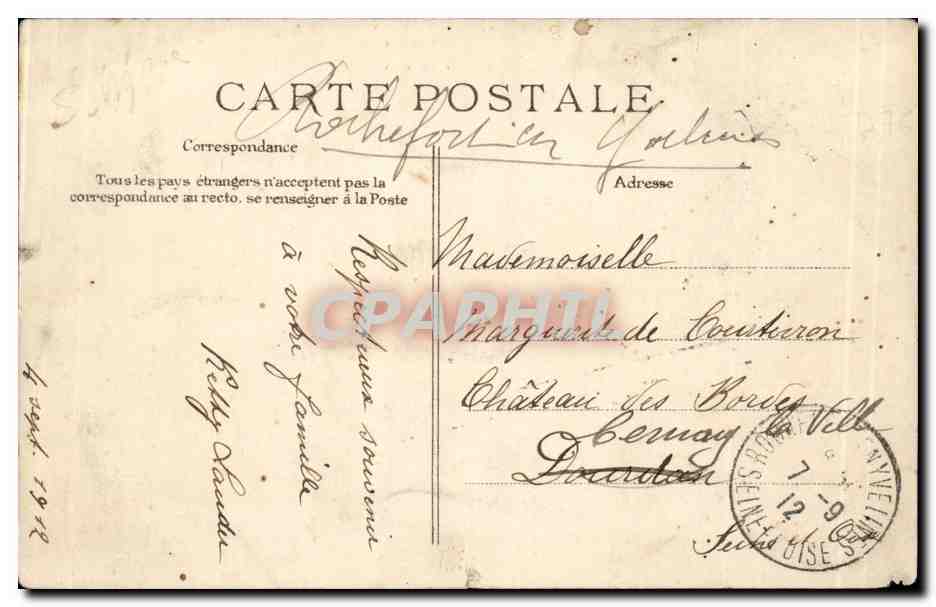 CARTE POSTALE
Rochefort en Yvelines
Correspondance
Tous les pays étrangers n'acceptent pas la
correspondance au recto, se renseigner à la Poste
Adresse
Respectueux souvenir
à votre famille
Ketty Lauder
4 sept. 1912
Mademoiselle
Marguerite de Courtivron
Château des Bordes
Cernay la Ville
Dourdan
Seine et Oise
EN YVELINES
7 -9
12
SEINE ET OISE
CPARHTL